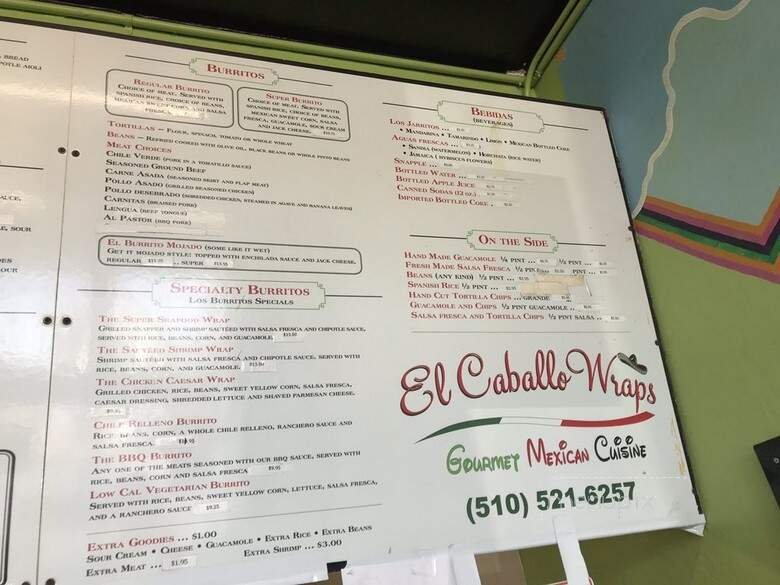 BREAD
POTLE AIOLI
SAUCE,
E, SOUR
Burritos
Regular Burrito
Choice of meat. Served with
Spanish rice, choice of beans,
Mexican sweet corn, and salsa
fresca.
Super Burrito
Choice of meat. Served with
Spanish rice, choice of beans,
Mexican sweet corn, salsa
fresca, guacamole, sour cream
and jack cheese.
Tortillas – Flour, spinach, tomato or whole wheat
Beans – Refried cooked with olive oil, black beans or whole pinto beans
Meat Choices
Chile Verde (pork in a tomatillo sauce)
Seasoned Ground Beef
Carne Asada (seasoned skirt and flap meat)
Pollo Asado (grilled seasoned chicken)
Pollo desebrado (shredded chicken, steamed in agave and banana leaves)
Carnitas (braised pork)
Lengua (beef tongue)
Al Pastor (BBQ pork)
El Burrito Mojado (some like it wet)
Get it mojado style! topped with enchilada sauce and jack cheese.
Regular .. Super
Specialty Burritos
Los Burritos Specials
The Super Seafood Wrap
Grilled snapper and shrimp sautéed with salsa fresca and chipotle sauce,
served with rice, beans, corn, and guacamole.
The Sautéed Shrimp Wrap
Shrimp sautéed with salsa fresca and chipotle sauce, served with
rice, beans, corn, and guacamole.
The Chicken Caesar Wrap
Grilled chicken, rice, beans, sweet yellow corn, salsa fresca,
caesar dressing, shredded lettuce and shaved parmesan cheese.
Chile Relleno Burrito
Rice, beans, corn, a whole chile relleno, ranchero sauce and
salsa fresca.
The BBQ Burrito
Any one of the meats seasoned with our BBQ sauce, served with
rice, beans, corn and salsa fresca $9.95
Low Cal Vegetarian Burrito
Served with rice, beans, sweet yellow corn, lettuce, salsa fresca,
and a ranchero sauce $9.25
Extra Goodies ... $1.00
Sour Cream • Cheese • Guacamole • Extra Rice • Extra Beans
Extra Meat ... $1.95 Extra Shrimp ... $3.00
Bebidas
(beverages)
Los Jarritos ...
• Mandarina • Tamarindo • Limon • Mexican Bottled Coke
Aguas Frescas ...
• Sandia (watermelon) • Horchata (rice water)
• Jamaica (hybiscus flowers)
Snapple ...
Bottled Water ...
Bottled Apple Juice
Canned Sodas (12 oz.)
Imported Bottled Coke .
On the Side
Hand Made Guacamole ¼ pint ... ½ pint ...
Fresh Made Salsa Fresca ½ pint pint ...
Beans (any kind) ½ pint ...
Spanish Rice ½ pint ...
Hand Cut Tortilla Chips ... grande
Guacamole and Chips ½ pint guacamole ..
Salsa fresca and Tortilla Chips ½ pint salsa ..
El Caballo Wraps
Gourmet Mexican Cuisine
(510) 521-6257